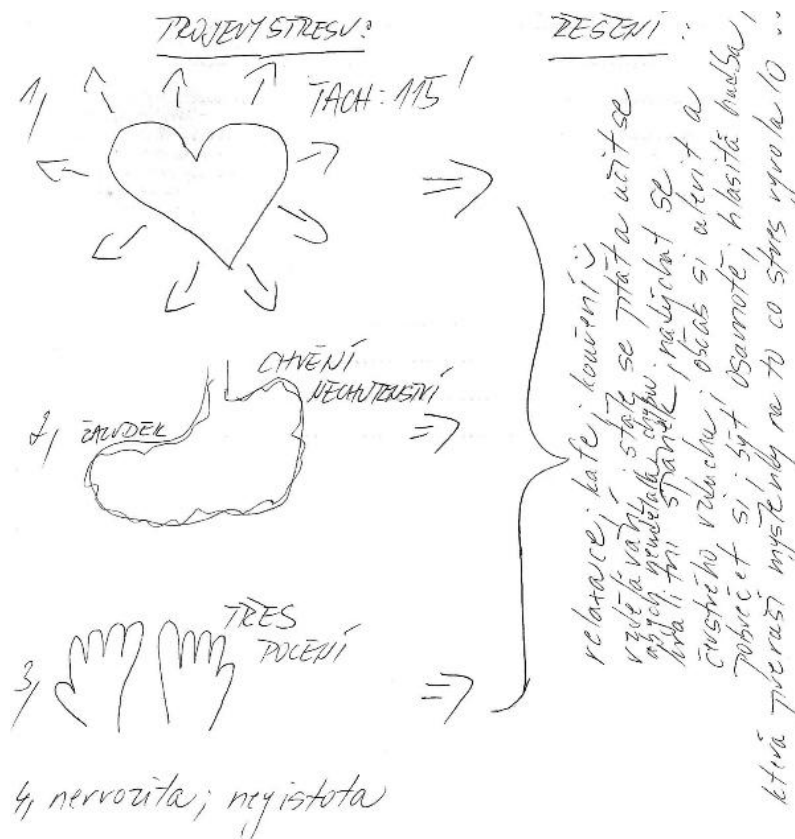 PROJEVY STRESU:
ŘEŠENÍ:
1, TACH: 115'
2, ŽALUDEK
CHVĚNÍ
NECHUTENSTVÍ
3, TŘES
POCENÍ
4, nervozita; nejistota
relaxace; kafe; kouření
vzdělávání; stále se ptát a učit se
abych neudělala chybu;
kvalitní spánek; nadýchat se
čerstvého vzduchu; občas si ulevit a
pobrečet si; být osamotě; hlasitá hudba,
která přeruší myšlenky na to co stres vyvolalo